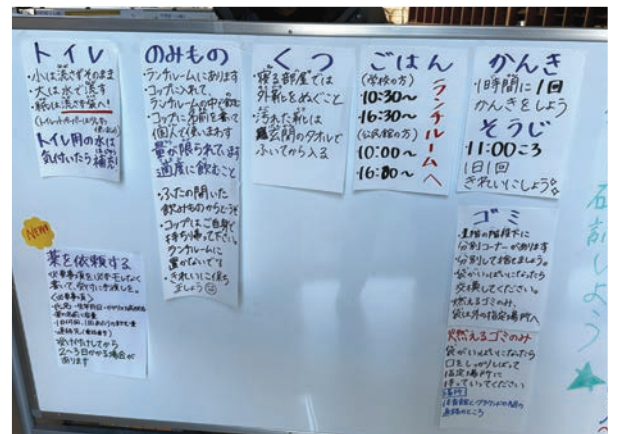 トイレ
・小は流さずそのまま
・大は水で流す
・紙は流さず袋へ!
(トイレットペーパー
トイレ用の水は
気付いたら補充
のみもの
・ランチルームにあります
・コップに入れて、
ランチルームの中で飲む
・コップに名前を書いて
個人で使いまわす
量が限られています
適度に飲むこと
・ふたの開いた
飲みものからどうぞ
・コップはご自身で
持ち帰って下さい。
ランチルームに
置かないで!!
・きれいに保ち
ましょう
くつ
・寝る部屋では
外靴をぬぐこと
・汚れた靴は
玄関のタオルで
ふいてから入る
ごはん
(学校の方)
10:30〜
16:30〜
(公民館の方)
10:00〜
16:00〜
ランチルームへ
かんき
・1時間に1回
かんきをしよう
そうじ
・11:00ころ
1日1回
きれいにしよう
ゴミ
階段下に
分別コーナーがあります
分別して捨てましょう。
袋がいっぱいになったら
交換してください。
燃えるゴミのみ、
袋は外の指定場所へ
燃えるゴミのみ
袋がいっぱいになったら
口をしっかりしばって
指定場所に
持っていってください
NEW
薬を依頼する
必要事項を
書いて、受付に
<必要事項>
・薬の名前と容量
受け付けしてから
2〜3日かかる場合が
あります
しよう